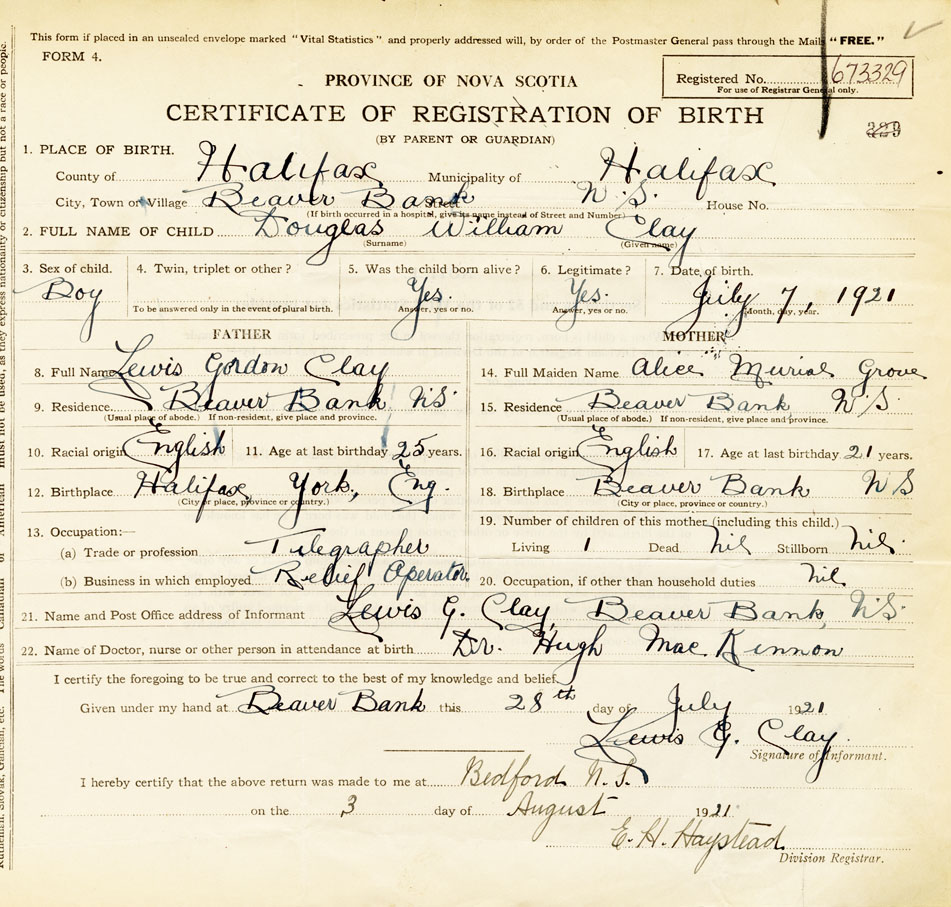 This form if placed in an unsealed envelope marked "Vital Statistics" and properly addressed will, by order of the Postmaster General pass through the Mail "FREE."
FORM 4.
PROVINCE OF NOVA SCOTIA
Registered No. 673329
For use of Registrar General only.
CERTIFICATE OF REGISTRATION OF BIRTH
(BY PARENT OR GUARDIAN)
229
1. PLACE OF BIRTH.
County of Halifax Municipality of Halifax
City, Town or Village Beaver Bank Street N.S. House No.
(If birth occurred in a hospital, give its name instead of Street and Number)
2. FULL NAME OF CHILD Douglas William Clay
(Surname) (Given name)
3. Sex of child. 4. Twin, triplet or other? 5. Was the child born alive? 6. Legitimate? 7. Date of birth.
Boy Yes. Yes. July 7, 1921
To be answered only in the event of plural birth. Answer, yes or no. Answer, yes or no. Month, day, year.
FATHER MOTHER
8. Full Name Lewis Gordon Clay 14. Full Maiden Name Alice Murial Grove
9. Residence Beaver Bank NS. 15. Residence Beaver Bank, N S
(Usual place of abode.) If non-resident, give place and province. (Usual place of abode.) If non-resident, give place and province.
10. Racial origin English 11. Age at last birthday 25 years. 16. Racial origin English 17. Age at last birthday 21 years.
12. Birthplace Halifax York, Eng. 18. Birthplace Beaver Bank N S
(City or place, province or country.) (City or place, province or country.)
13. Occupation:— 19. Number of children of this mother (including this child.)
(a) Trade or profession Telegrapher Living 1 Dead Nil Stillborn Nil.
(b) Business in which employed Relief Operator 20. Occupation, if other than household duties nil
21. Name and Post Office address of Informant Lewis G. Clay, Beaver Bank, NS.
22. Name of Doctor, nurse or other person in attendance at birth Dr. Hugh Mac Kinnon
I certify the foregoing to be true and correct to the best of my knowledge and belief.
Given under my hand at Beaver Bank this 28th day of July 1921
Lewis G. Clay.
Signature of Informant.
I hereby certify that the above return was made to me at Bedford N.S.
on the 3 day of August 1921
E. H. Haystead
Division Registrar.